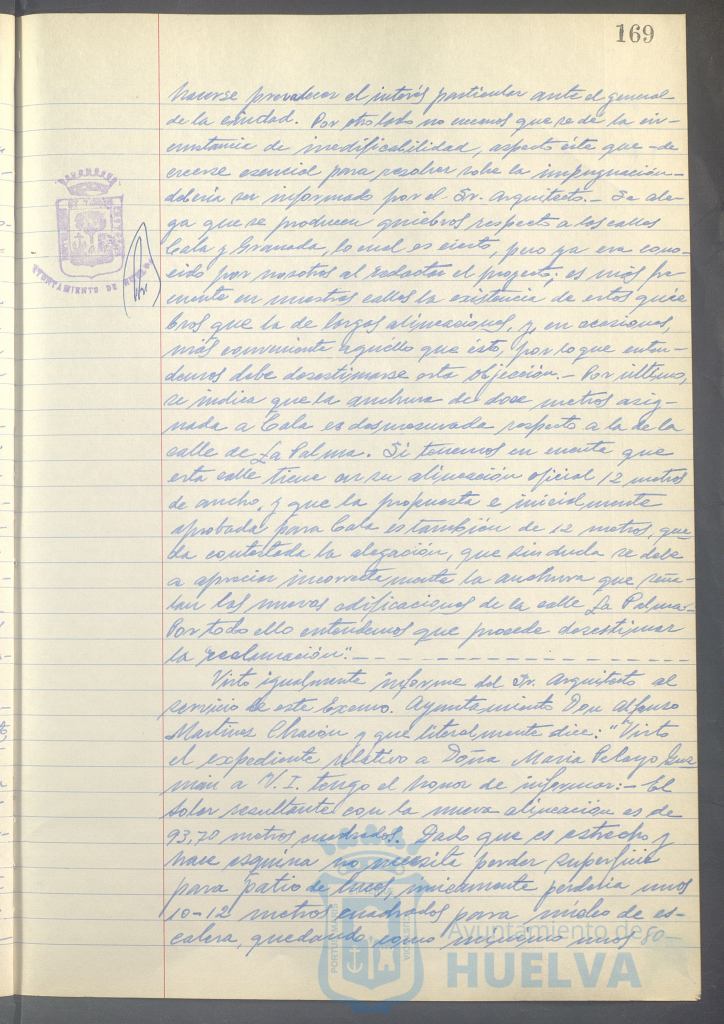 169
hacerse prevalecer el interés particular ante el general
de la ciudad. Por otro lado no creemos que se de la cir-
cunstancia de inedificabilidad, aspecto éste que -de
creerse esencial para resolver sobre la impugnación-
debería ser informado por el Sr. Arquitecto.- Se ale-
ga que se producen quiebros respecto a las calles
Cala y Granada, lo cual es cierto, pero ya era cono-
cido por nosotros al redactar el proyecto; es más fre-
cuente en nuestras calles la existencia de estos quie-
bros que la de largas alineaciones, y, en ocasiones,
más conveniente aquéllo que ésto, por lo que enten-
demos debe desestimarse esta objección.- Por último,
se indica que la anchura de doce metros asig-
nada a Cala es desmesurada respecto a la de la
calle de La Palma. Si tenemos en cuenta que
esta calle tiene en su alineación oficial 12 metros
de ancho, y que la propuesta e inicialmente
aprobada para Cala es también de 12 metros, que-
da contestada la alegación, que sin duda se debe
a apreciar incorrectamente la anchura que seña-
lan las nuevas edificaciones de la calle La Palma.-
Por todo ello entendemos que procede desestimar
la reclamación".- - - - - - - - - - - - - - -
Visto igualmente informe del Sr. Arquitecto al
servicio de este Excmo. Ayuntamiento Don Alfonso
Martínez Chacón y que literalmente dice: "Visto
el expediente relativo a Doña María Pelayo Guz-
mán a V.I. tengo el honor de informar:- El
solar resultante con la nueva alineación es de
93,70 metros cuadrados. Dado que es estrecho y
hace esquina no necesita perder superficie
para patio de luces, únicamente perdería unos
10-12 metros cuadrados para núcleo de es-
calera, quedando como mínimo unos 80-
AYUNTAMIENTO DE HUELVA
Ayuntamiento de
HUELVA